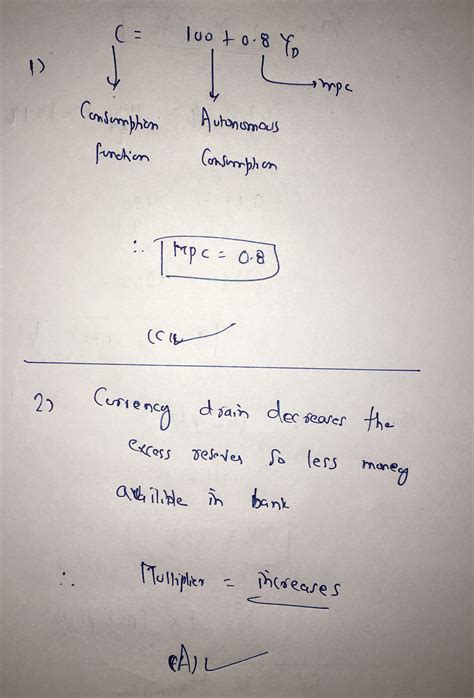 1) C = 100 + 0.8 Y_D
mpc
Consumption function
Autonomous Consumption
∴ MPC = 0.8
(C) ✓
2) Currency drain decreases the
excess reserves so less money
availible in bank
∴ Multiplier = increases
(A) ✓